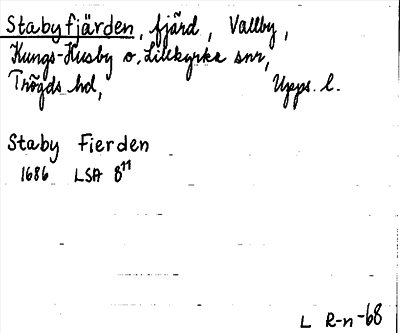 Stabyfjärden, fjärd, Vallby,
Kungs-Husby o. Lillkyrka snr,
Trögds hd, Upps. l.
Staby Fierden
1686 LSA 8¹¹
L R-n -68